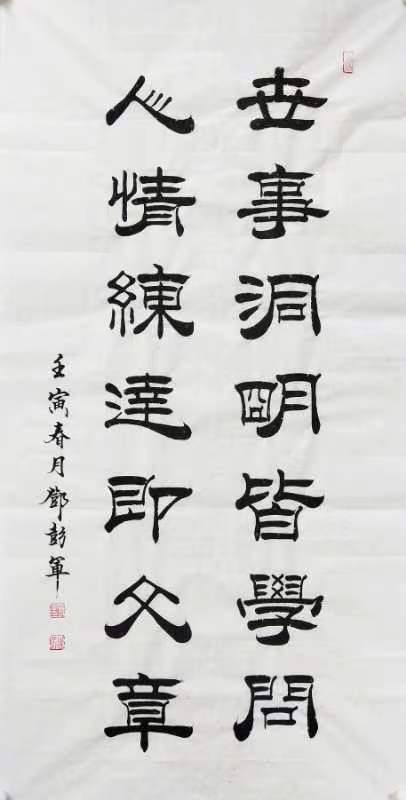 世事洞明皆學問
人情練達即文章
壬寅春月鄧彭軍